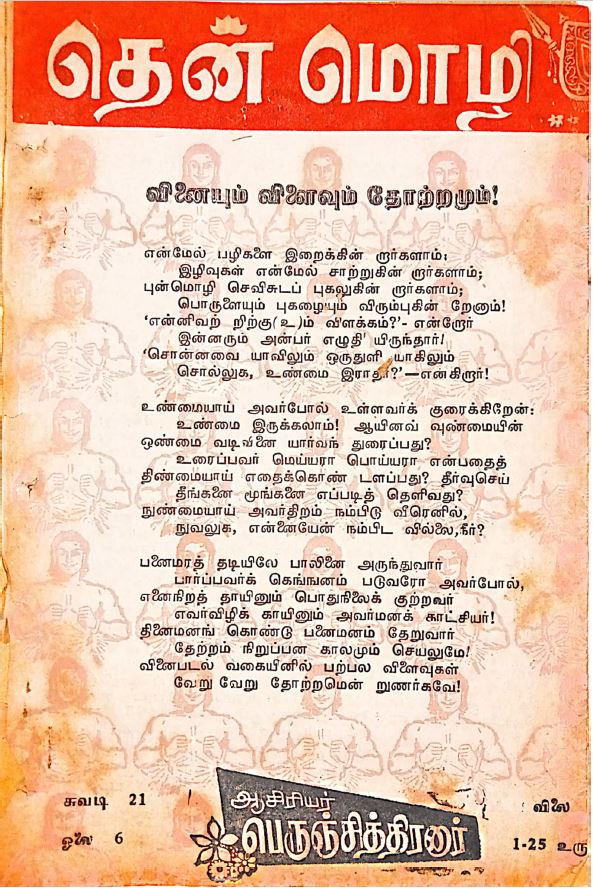 தென் மொழி
வினையும் விளைவும் தோற்றமும்!
என்மேல் பழிகளை இறைக்கின் றார்களாம்;
இழிவுகள் என்மேல் சாற்றுகின் றார்களாம்;
புன்மொழி செவிசுடப் புகலுகின் றார்களாம்;
பொருளையும் புகழையும் விரும்புகின் றேனாம்!
‘என்னிவற் றிற்கு(உ)ம் விளக்கம்?’- என்றோர்
இன்னரும் அன்பர் எழுதி யிருந்தார்!
‘சொன்னவை யாவிலும் ஒருதுளி யாகிலும்
சொல்லுக, உண்மை இராதா?’—என்கிறார்!
உண்மையாய் அவர்போல் உள்ளவர்க் குரைக்கிறேன்:
உண்மை இருக்கலாம்! ஆயினவ் வுண்மையின்
ஒண்மை வடிவினை யார்வந் துரைப்பது?
உரைப்பவர் மெய்யரா பொய்யரா என்பதைத்
திண்மையாய் எதைக்கொண் டளப்பது? தீர்வுசெய்
தீங்கனை மூங்கனை எப்படித் தெளிவது?
நுண்மையாய் அவர்திறம் நம்பிடு வீரெனில்,
நுவலுக, என்னையேன் நம்பிட வில்லை,நீர்?
பனைமரத் தடியிலே பாலினை அருந்துவார்
பார்ப்பவர்க் கெங்ஙனம் படுவரோ அவர்போல்,
எனைநிறத் தாயினும் பொதுநிலைக் குற்றவர்
எவர்விழிக் காயினும் அவர்மனக் காட்சியர்!
தினைமனங் கொண்டு பனைமனம் தேறுவார்
தேற்றம் நிறுப்பன காலமும் செயலுமே!
வினைபடல் வகையினில் பற்பல விளைவுகள்
வேறு வேறு தோற்றமென் றுணர்கவே!
சுவடி 21
ஓலை 6
ஆசிரியர்
பெருஞ்சித்திரனார்
விலை
1-25 உரு